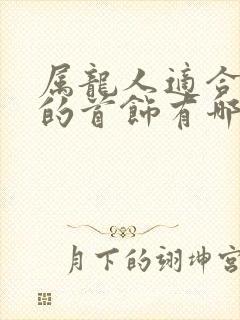 属龍人適合
的首飾有哪
月下的翊坤宮